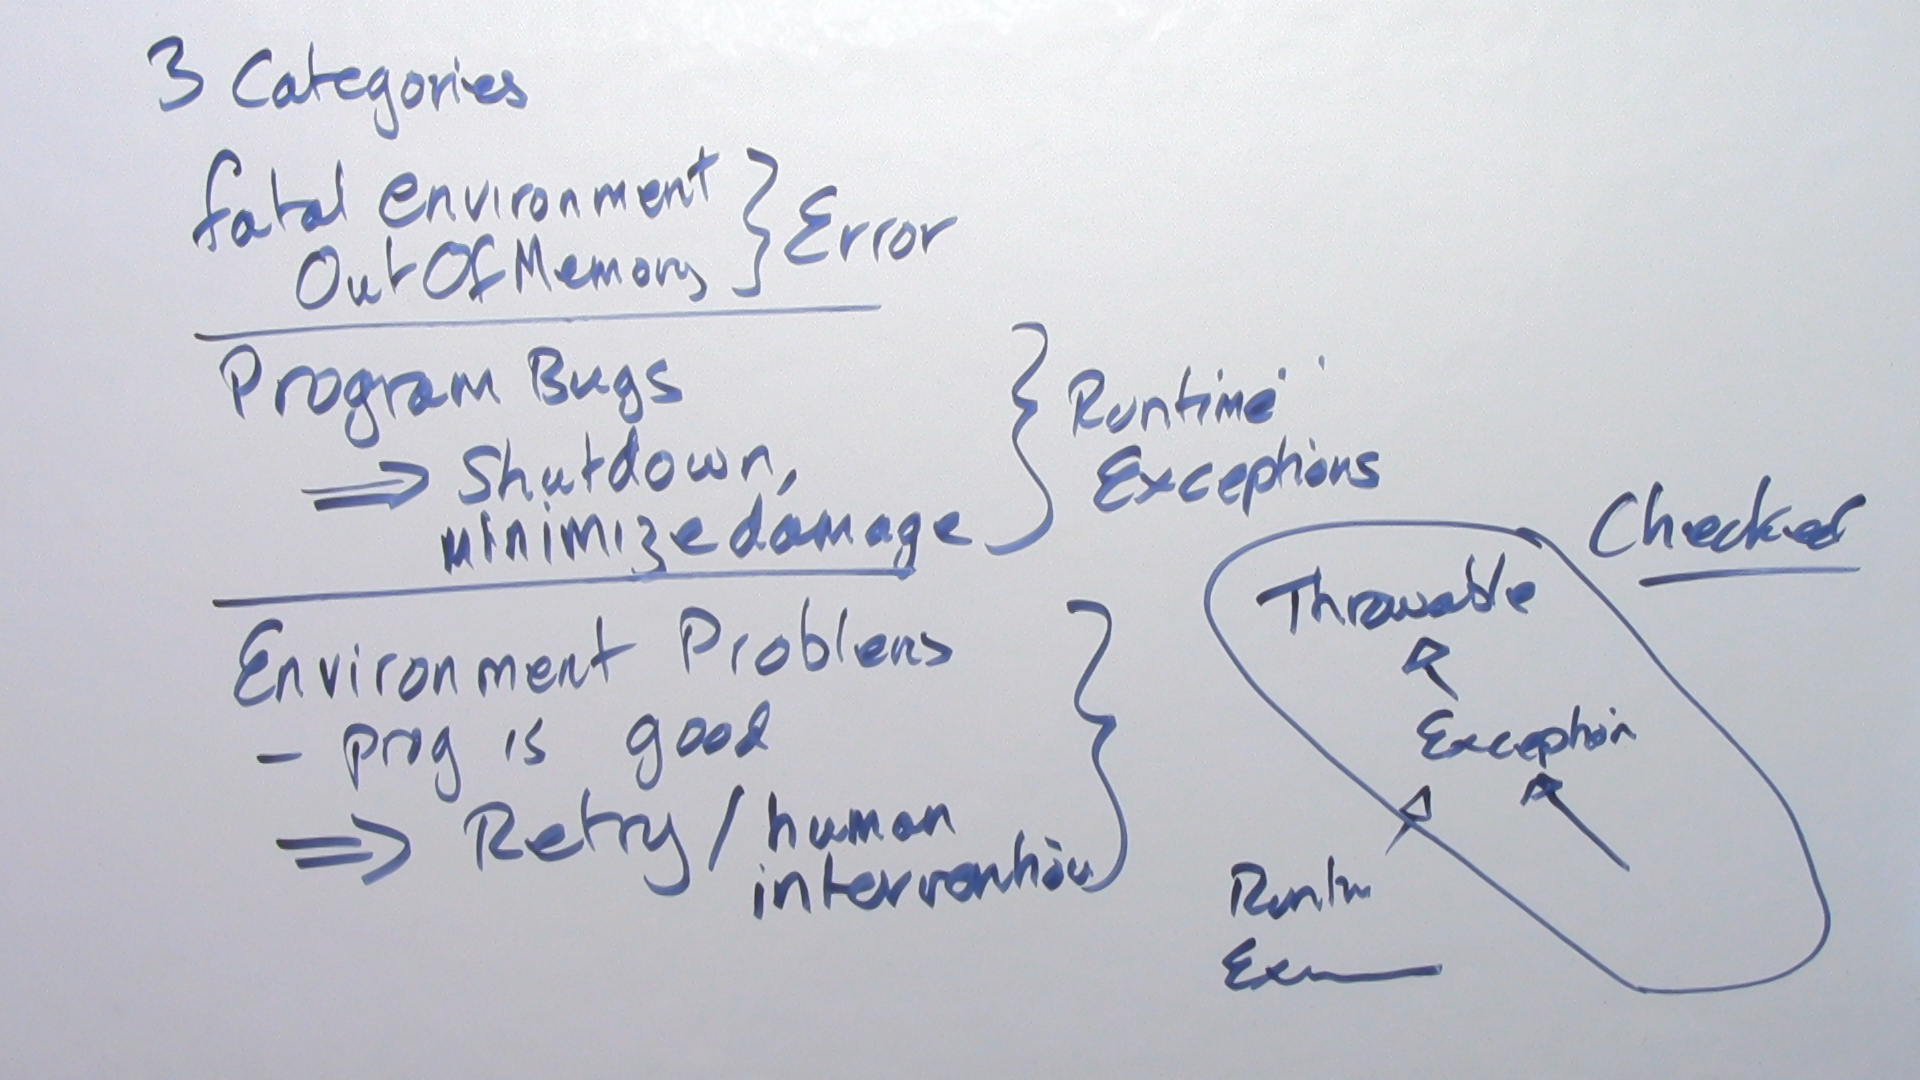 3 Categories
fatal environment } Error
OutOfMemory
Program Bugs
⇒ Shutdown,
minimize damage
} Runtime
Exceptions
Environment Problems
- prog is good
⇒ Retry / human
intervention
Checked
Throwable
Exception
Runtm
Ex